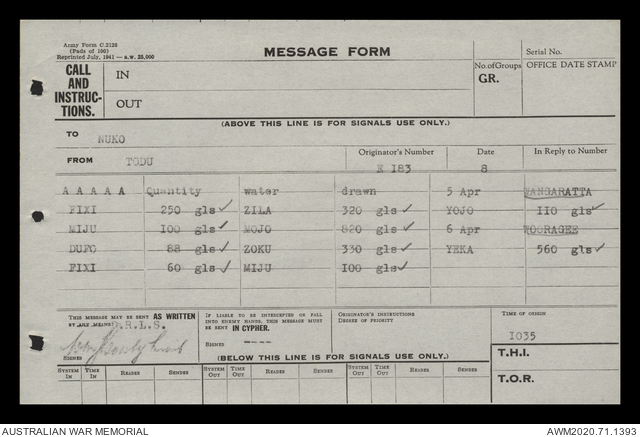 Army Form C.2128
(Pads of 100)
Reprinted July, 1941 — s.w. 25,000
MESSAGE FORM
Serial No.
CALL AND INSTRUC-TIONS.
IN
OUT
No. of Groups
GR.
OFFICE DATE STAMP
(ABOVE THIS LINE IS FOR SIGNALS USE ONLY.)
TO NUKO
FROM TODU
Originator's Number K 183
Date 8
In Reply to Number
A A A A A Quantity water drawn 5 Apr WANGARATTA
FIXI 250 gls ZILA 320 gls YOJO 110 gls
MIJU 100 gls MOJO 820 gls 6 Apr WOORAGEE
DUFO 88 gls ZOKU 330 gls YEKA 560 gls
FIXI 60 gls MIJU 100 gls
THIS MESSAGE MAY BE SENT AS WRITTEN BY ANY MEANS D.R.L.S.
SIGNED
IF LIABLE TO BE INTERCEPTED OR FALL INTO ENEMY HANDS, THIS MESSAGE MUST BE SENT IN CYPHER.
SIGNED ----
ORIGINATOR'S INSTRUCTIONS
DEGREE OF PRIORITY
TIME OF ORIGIN
1035
T.H.I.
T.O.R.
(BELOW THIS LINE IS FOR SIGNALS USE ONLY.)
SYSTEM IN TIME IN READER SENDER SYSTEM OUT TIME OUT READER SENDER SYSTEM OUT TIME OUT READER SENDER
AUSTRALIAN WAR MEMORIAL
AWM2020.71.1393